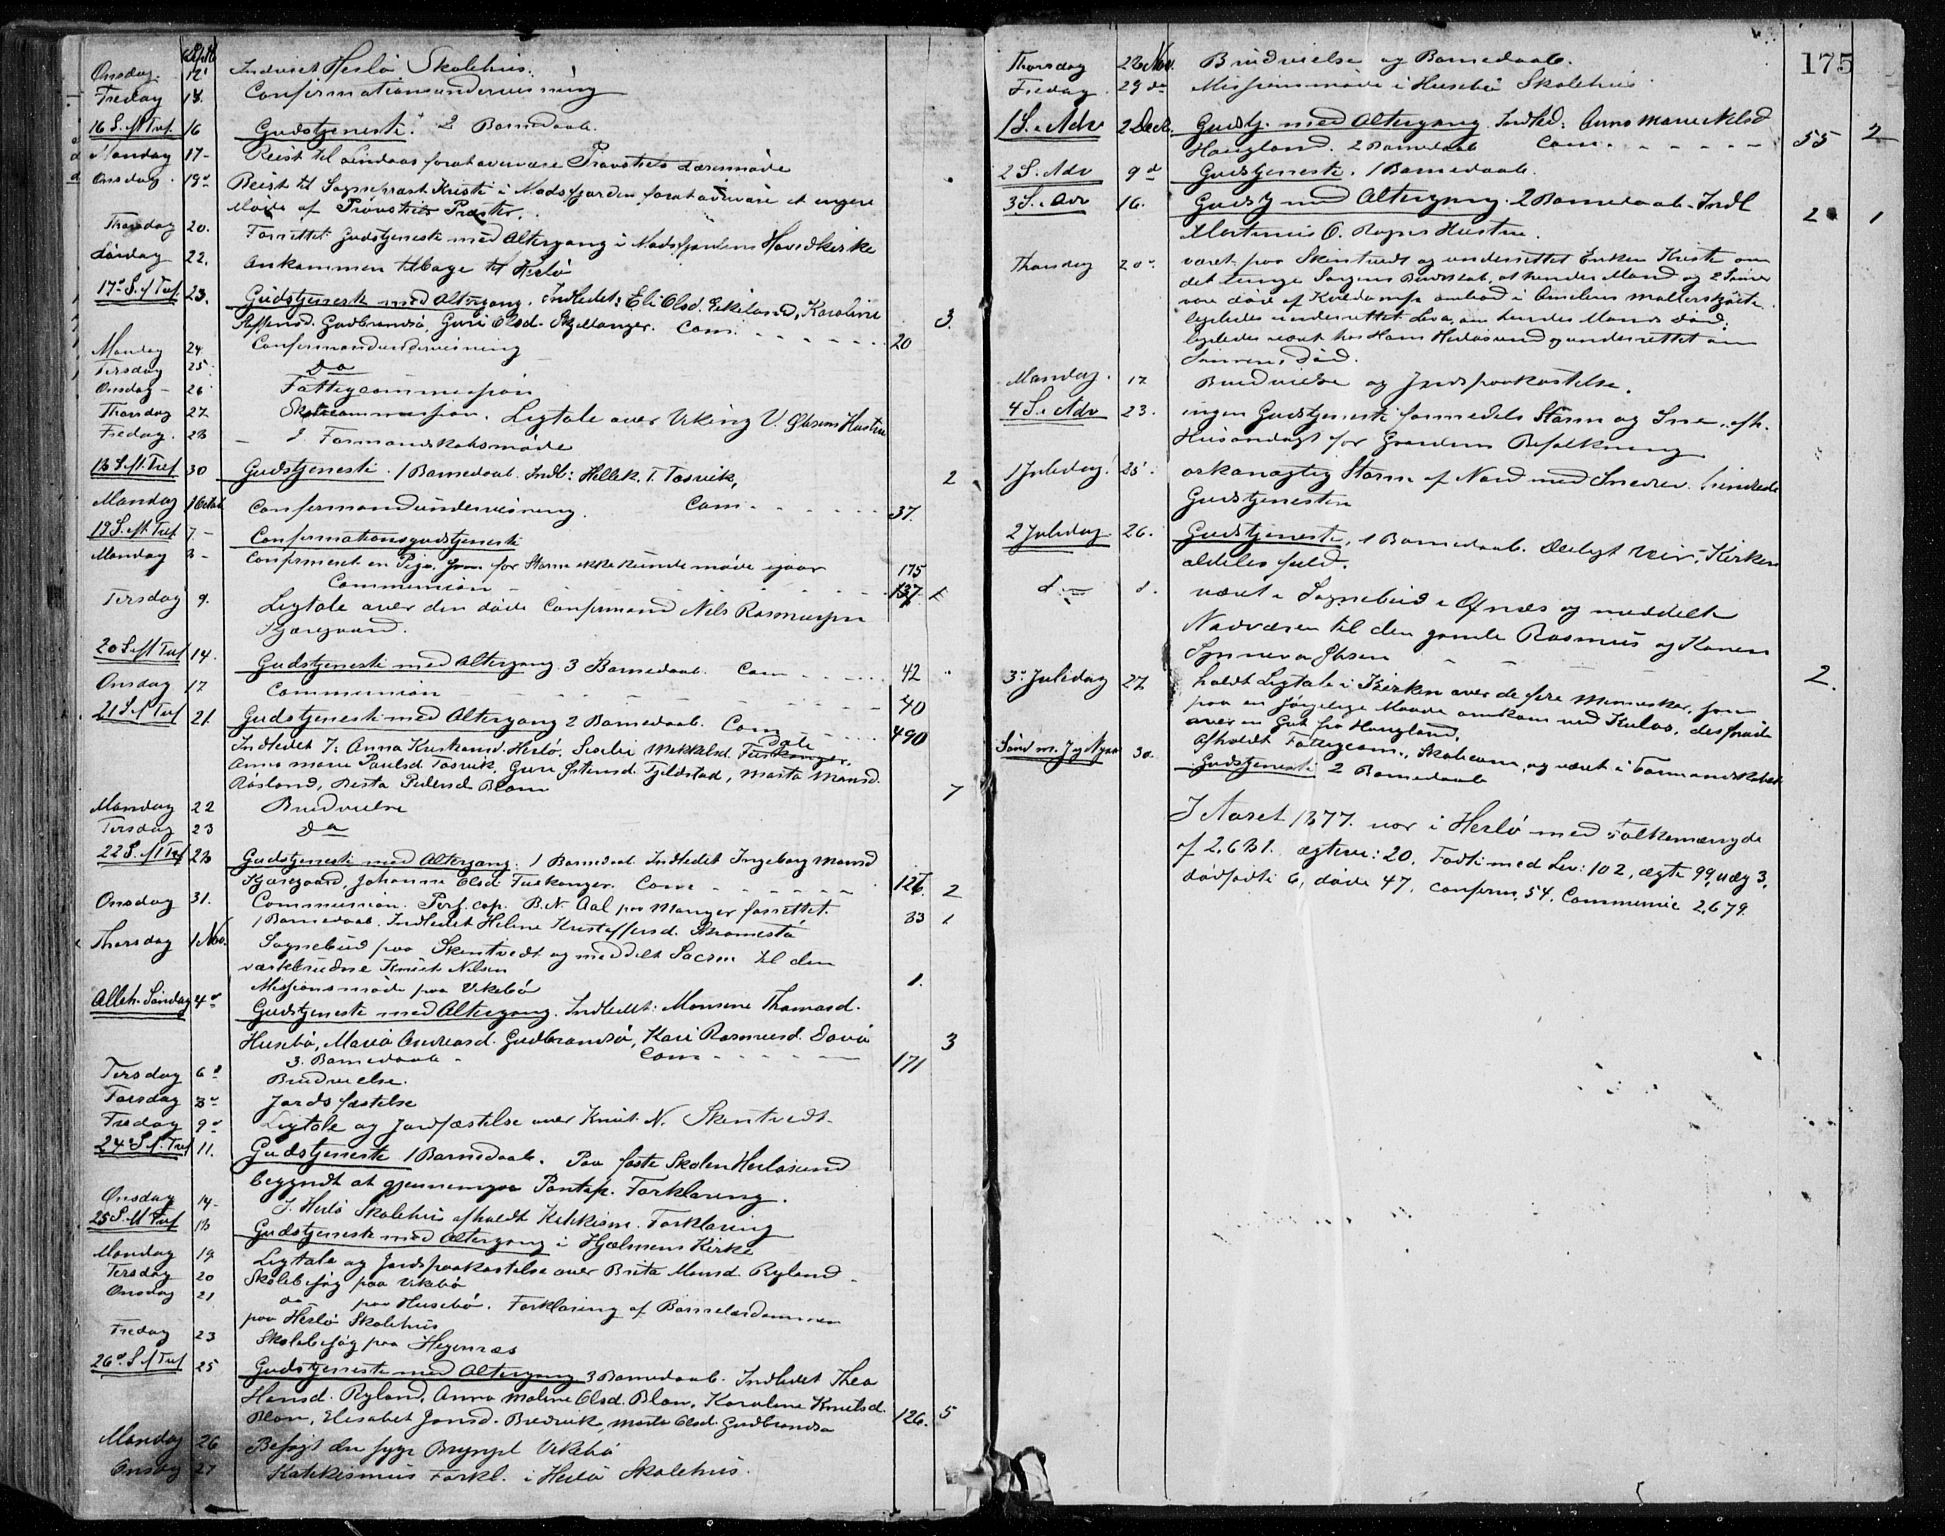 Septb
Onsdag 12 Indviet Herlø Skolehus.
Fredag 14. Confirmationsundervisning
16 S. eft Tref. 16 Gudstjeneste. 2 Barnedaab.
Mandag 17- Reist til Lindaas forat overvære Provstiets Lærermøde
Onsdag 19d Reist til Sognepræst i forat overvære et
Møde af Provstiets Præster.
Thorsdag 20. Forrettet Gudstjeneste med Altergang i Hovedkirke
Lørdag 22. Ankommen tilbage til Herlø
17d S. f Tref 23. Gudstjeneste med Altergang. Indledet: Eli Olsd. Eikeland, Karoline
Steffensd. Gudbrandsø, Guri Olsd. Skjellanger. Com. 20 3.
Mandag 24. Confirmandundervisning
Tirsdag 25. Do
Onsdag - 26 Fattigcommission
Thorsdag 27. Skolecommission. Ligtale over Viking V. Hustru
Fredag. 28 - I Formandskabsmøde
18 S. eft. Tref 30 Gudstjeneste. 1 Barnedaab. Indl: Hellek. T. Tosvik, 2
Mandag 1 Octob Confirmandundervisning. Com. 37.
19 S. eft. Tref 7.- Confirmationsgudstjeneste
Mandag 8- Confirmeret en Pige, som for Storm ikke kunde møde igaar 175
Communion 137
Tirsdag 9. Ligtale over den døde Confirmand Nels Rasmussen
Kjæregaard.
20 S eft Tref 14. Gudstjeneste med Altergang. 3 Barnedaab. Com 42
Onsdag 17 Communion 40
21 S f Tref 21. Gudstjeneste med Altergang 2 Barnedaab. Com 490
Indledet 7: Anna Kristensd. Herlø, Mikkelsd. Fuskanger,
Anna Marie Paulsd Tosvik, Guri Tjeldstad, Marta Monsd.
Røsland, Berta Pedersd Blom 7
Mandag 22 Brudvielse
Tirsdag 23 Do
22 S. eft Tref 28 Gudstjeneste med Altergang. 1 Barnedaab Indledet Ingeborg Monsd
Kjæregaard, Johanne Olsd Fuskanger. Com 127 2
Onsdag 31. Communion. Pers. cap. B. N. Aal paa Manger forrettet. 33 1
1 Barnedaab. Indledet Helene Kristoffersd.
Thorsdag 1 Nov. Sognebud paa Skentvedt og meddelt Sacrm til den
værkbrudne Knut Nilsen 1.
Missionsmøde paa Vikebø
Alleh. Søndag 4d Gudstjeneste med Altergang. Indledet: Monsine Thomasd.
Husebø, Maria Andreasd. Gudbrandsø, Kari Rasmusd. Davø 3
3. Barnedaab - Com 171
Tirsdag 6d Brudvielse.
Torsdag 8d Jordfæstelse
Fredag 9d Ligtale og Jordfæstelse over Knut N. Skentvedt.
24d S. f. Tref 11. Gudstjeneste 1 Barnedaab. Paa faste Skolen Herløsund
begyndt at gjennemgaa Pontop. Forklaring.
Onsdag 14- I Herlø Skolehus afholdt Katekism. Forklaring
25 S. eft Tref 18 Gudstjeneste med Altergang i Hjelmens Kirke
Mandag 19 Ligtale og Jordpaakastelse over Brita Monsd. Ryland-
Tirsdag 20 Skolebesøg paa Vikebø
Onsdag 21 do paa Husebø. Forklaring af Barnelærdommen
paa Herlø Skolehus
Fredag 23 Skolebesøg paa Hegernæs
26d S. f Tref 25 Gudstjeneste med Altergang 3 Barnedaab. Indledet Thea
Hansd. Ryland, Anna Maline Olsd. Blom, Karoline Knutsd.
Blom, Elisabet Jonsd. Bredvik, Marta Olsd. Gudbrandsø 126. 5
Mandag 26 Besøgt den syge Brynjel Vikebø
Onsdag 27 Katekismus Forkl. i Herlø Skolehus.
175
Thorsdag 28 Nov. Brudvielse og Barnedaab.
Fredag. 29 do Missionsmøde i Husebø Skolehus
1 S. i Adv 2 Decb. Gudstj. med Altergang. Indled: Anne Marie Nelsd
Haugland. 2 Barnedaab Com. 55 2
2 S. Adv 9d Gudstjeneste. 1 Barnedaab.
3 S. Adv 16. Gudstj med Altergang. 2 Barnedaab. Indl 2 1
Martinus O. Hustru.
Thorsdag 20d været paa Skentvedt og underrettet Enken Kriste om
det tunge Sorgens Budskab, at hendes Mand og 2 Sønner
vare døde af
ligeledes underrettet om hendes Mands Død,
ligeledes været hos Hans Herløsund og underrettet om
Sønnens Død.
Mandag. 17 Brudvielse og Jordpaakastelse.
4 S. i Adv 23. ingen Gudstjeneste formedels Storm og Sne. afh.
Husandagt for Gaardens Befolkning
1 Juledag 25. orkanagtig Storm af Nord med Snedrev. hindrede
Gudstjenesten
2 Juledag 26. Gudstjeneste, 1 Barnedaab. Deiligt Veir, Kirken
aldeles fuld.
d - d. været i Sognebud i og meddelt
Nadveren til den gamle Rasmus og Konen
Synneva 2.
3d Juledag 27 holdt Ligtale i Kirken over de fire Mennesker, som
paa en sørgelige Maade omkom ved desforuden
over en Gut fra Haugland.
Afholdt Fattigcom., Skolecom, og været i Formandskabet
Sønd m. J og Nyaar 30. Gudstjeneste 2 Barnedaab
I Aaret 1877. var i Herlø med Folkemængde
af 2,681. ægtevi: 20. Fødte med Lev: 102, ægte 99, uæg 3,
dødfødte 6, døde 47, confirm. 54. Communic 2,679.